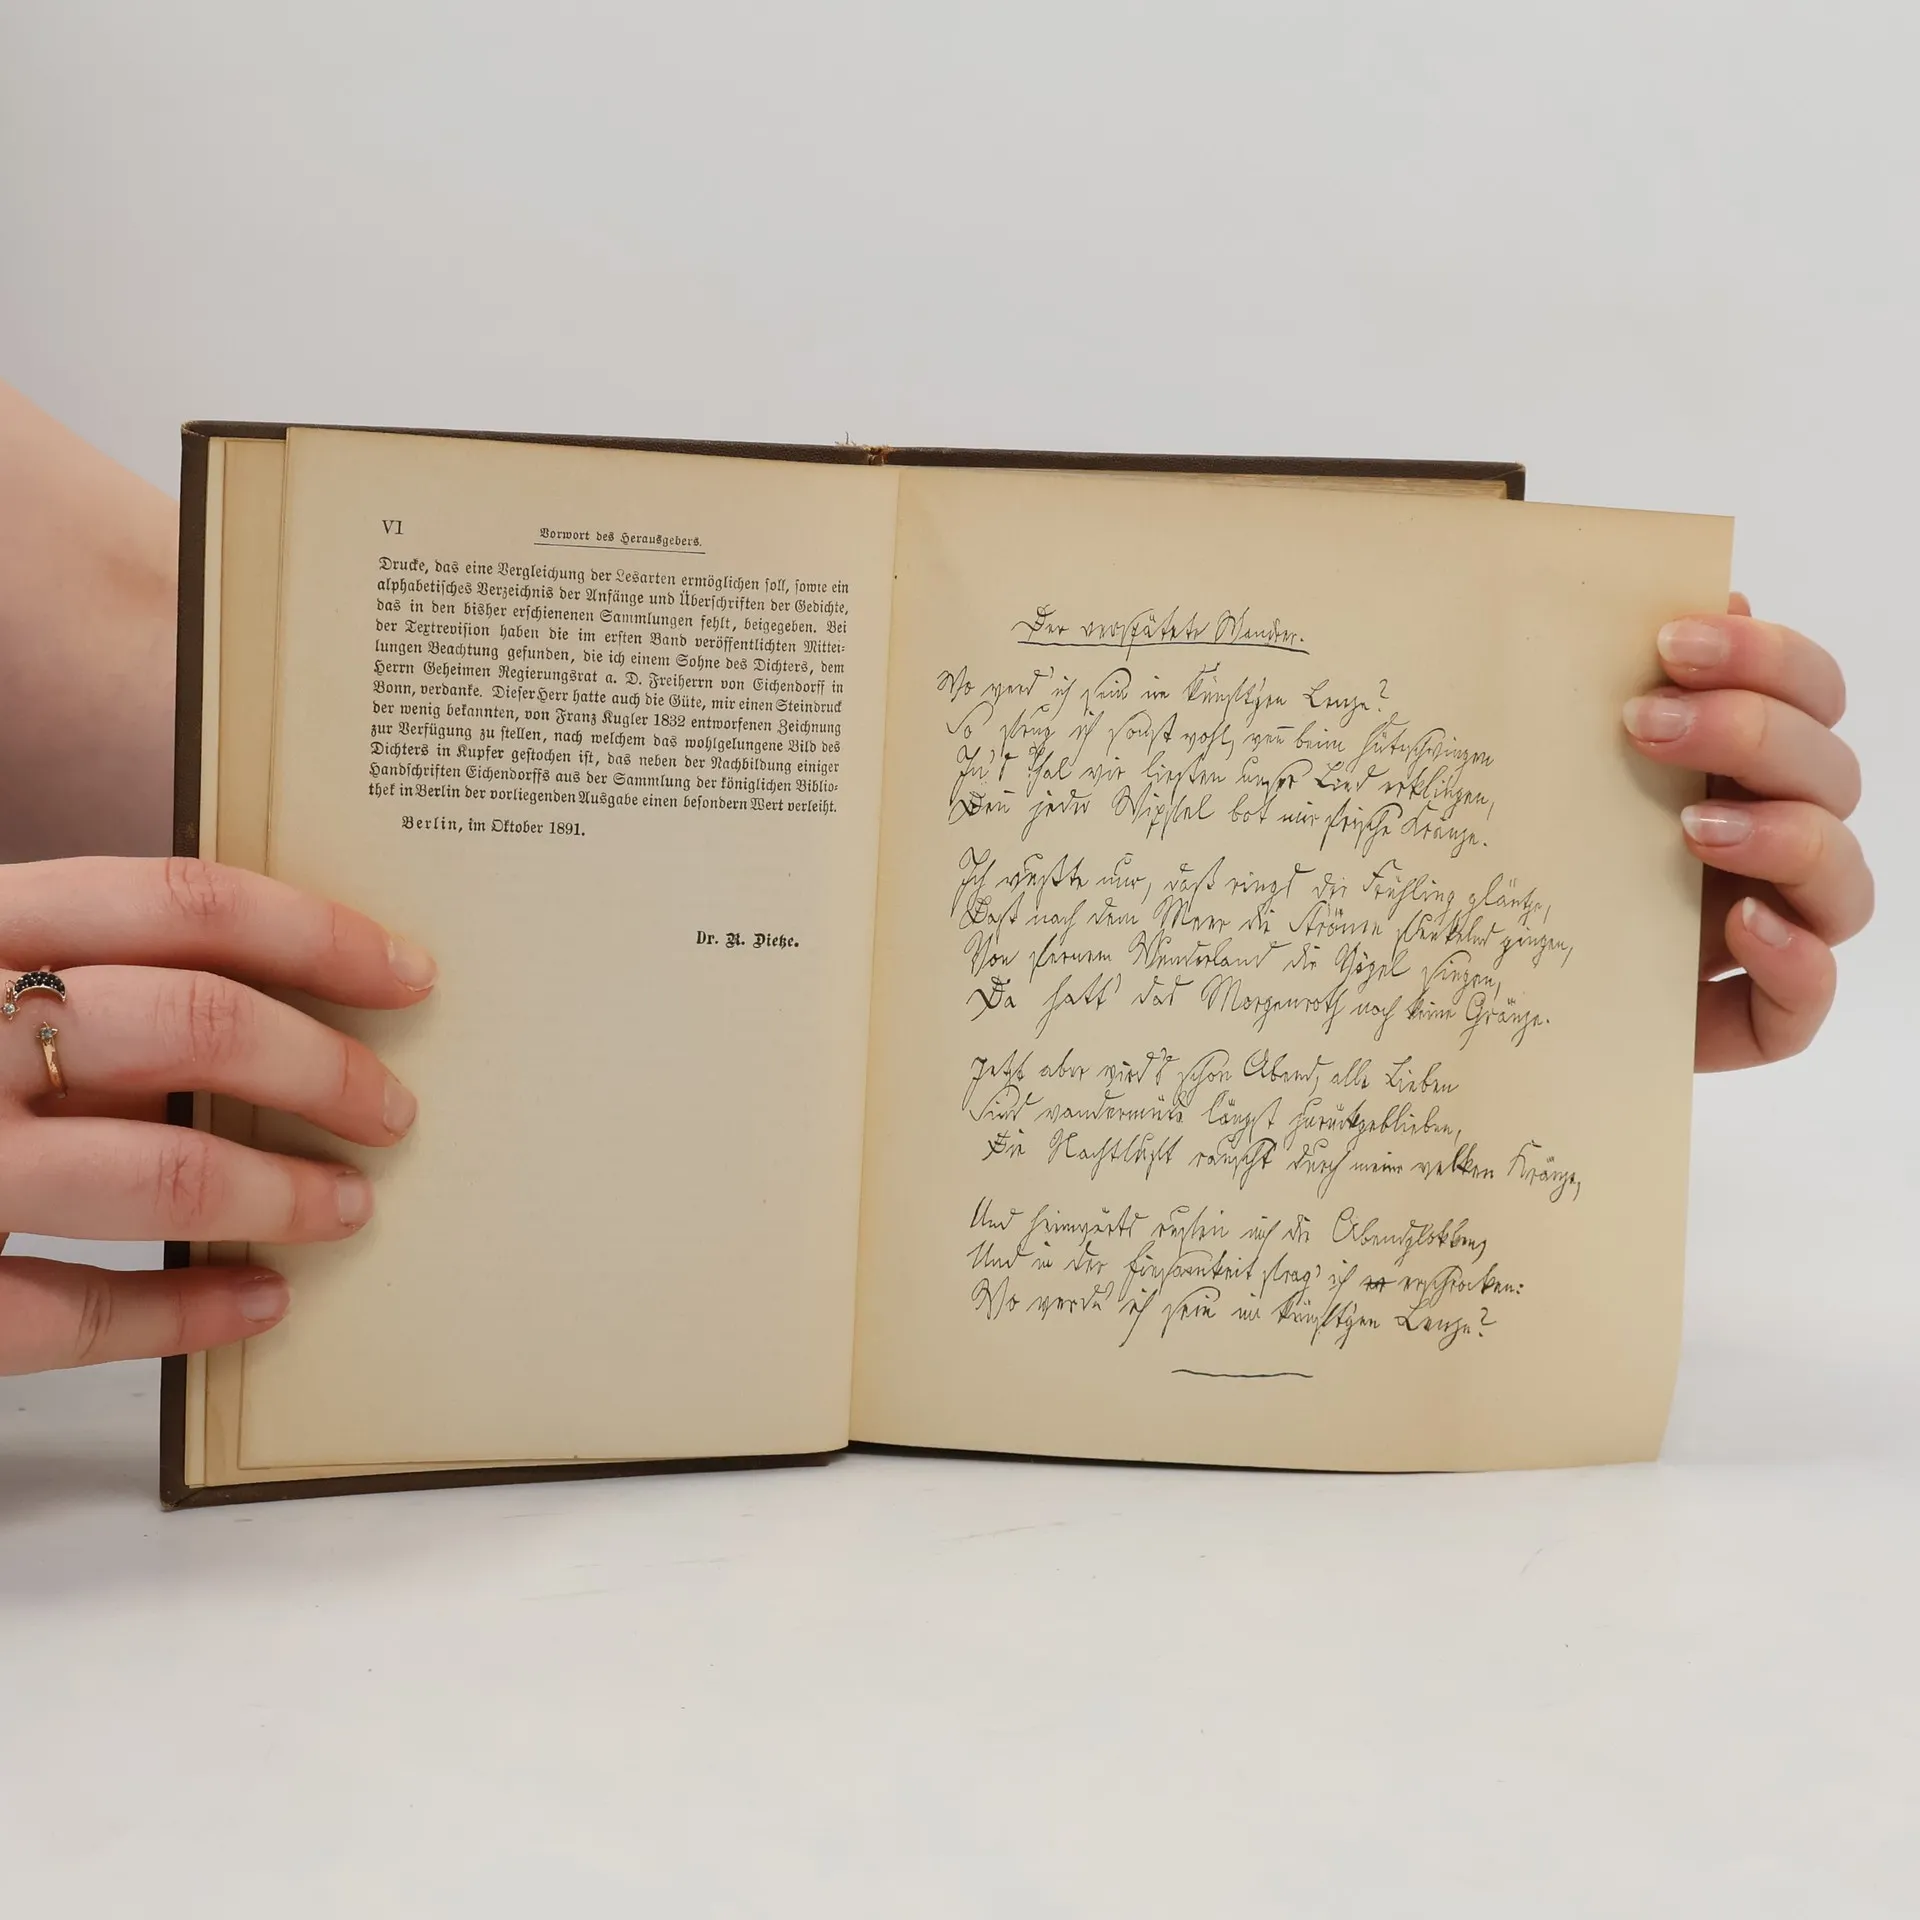 VI
Vorwort des Herausgebers.
Drucke, das eine Vergleichung der Lesarten ermöglichen soll, sowie ein
alphabetisches Verzeichnis der Anfänge und Überschriften der Gedichte,
das in den bisher erschienenen Sammlungen fehlt, beigegeben. Bei
der Textrevision haben die im ersten Band veröffentlichten Mittei-
lungen Beachtung gefunden, die ich einem Sohne des Dichters, dem
Herrn Geheimen Regierungsrat a. D. Freiherrn von Eichendorff in
Bonn, verdanke. Dieser Herr hatte auch die Güte, mir einen Steindruck
der wenig bekannten, von Franz Kugler 1832 entworfenen Zeichnung
zur Verfügung zu stellen, nach welchem das wohlgelungene Bild des
Dichters in Kupfer gestochen ist, das neben der Nachbildung einiger
Handschriften Eichendorffs aus der Sammlung der königlichen Biblio-
thek in Berlin der vorliegenden Ausgabe einen besondern Wert verleiht.
Berlin, im Oktober 1891.
Dr. R. Dietze.
Der verspätete Wandrer.
Wo werd' ich sein im künft'gen Lenze?
So frug ich sonst wohl, wen̄ beim Hüteschwingen
In's Thal wir ließen unser Lied erklingen,
Den̄ jeder Wipfel bot mir frische Kränze.
Ich wußte nur, daß rings der Frühling glänze,
Daß nach dem Meer die Ströme funkelnd gingen,
Von fernem Wunderland die Vögel singen,
Da hatt' das Morgenroth noch keine Gränze.
Jetzt aber wird's schon Abend, alle Lieben
Sind wandermüde längst zurückgeblieben,
Die Nachtluft rauscht durch meine welken Kränze,
Und heimwärts rufen mich die Abendglokken,
Und in der Einsamkeit frag' ich erschrocken:
Wo werde ich sein im künft'gen Lenze?